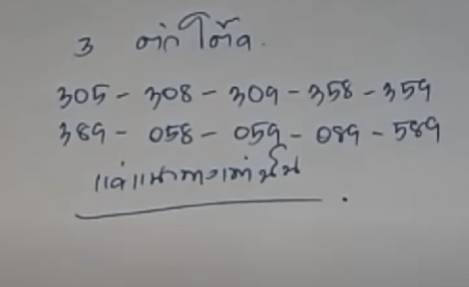 3 ตัวโต๊ด.
305 - 308 - 309 - 358 - 359
389 - 058 - 059 - 089 - 589
แค่แนวทางเท่านั้น.